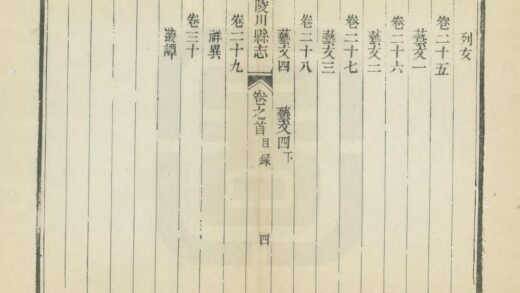 列女
卷二十五
藝文一
卷二十六
藝文二
卷二十七
藝文三
卷二十八
藝文四　藝文四下
陵川縣志　卷之首　目錄　四
卷二十九
祥異
卷三十
叢譚